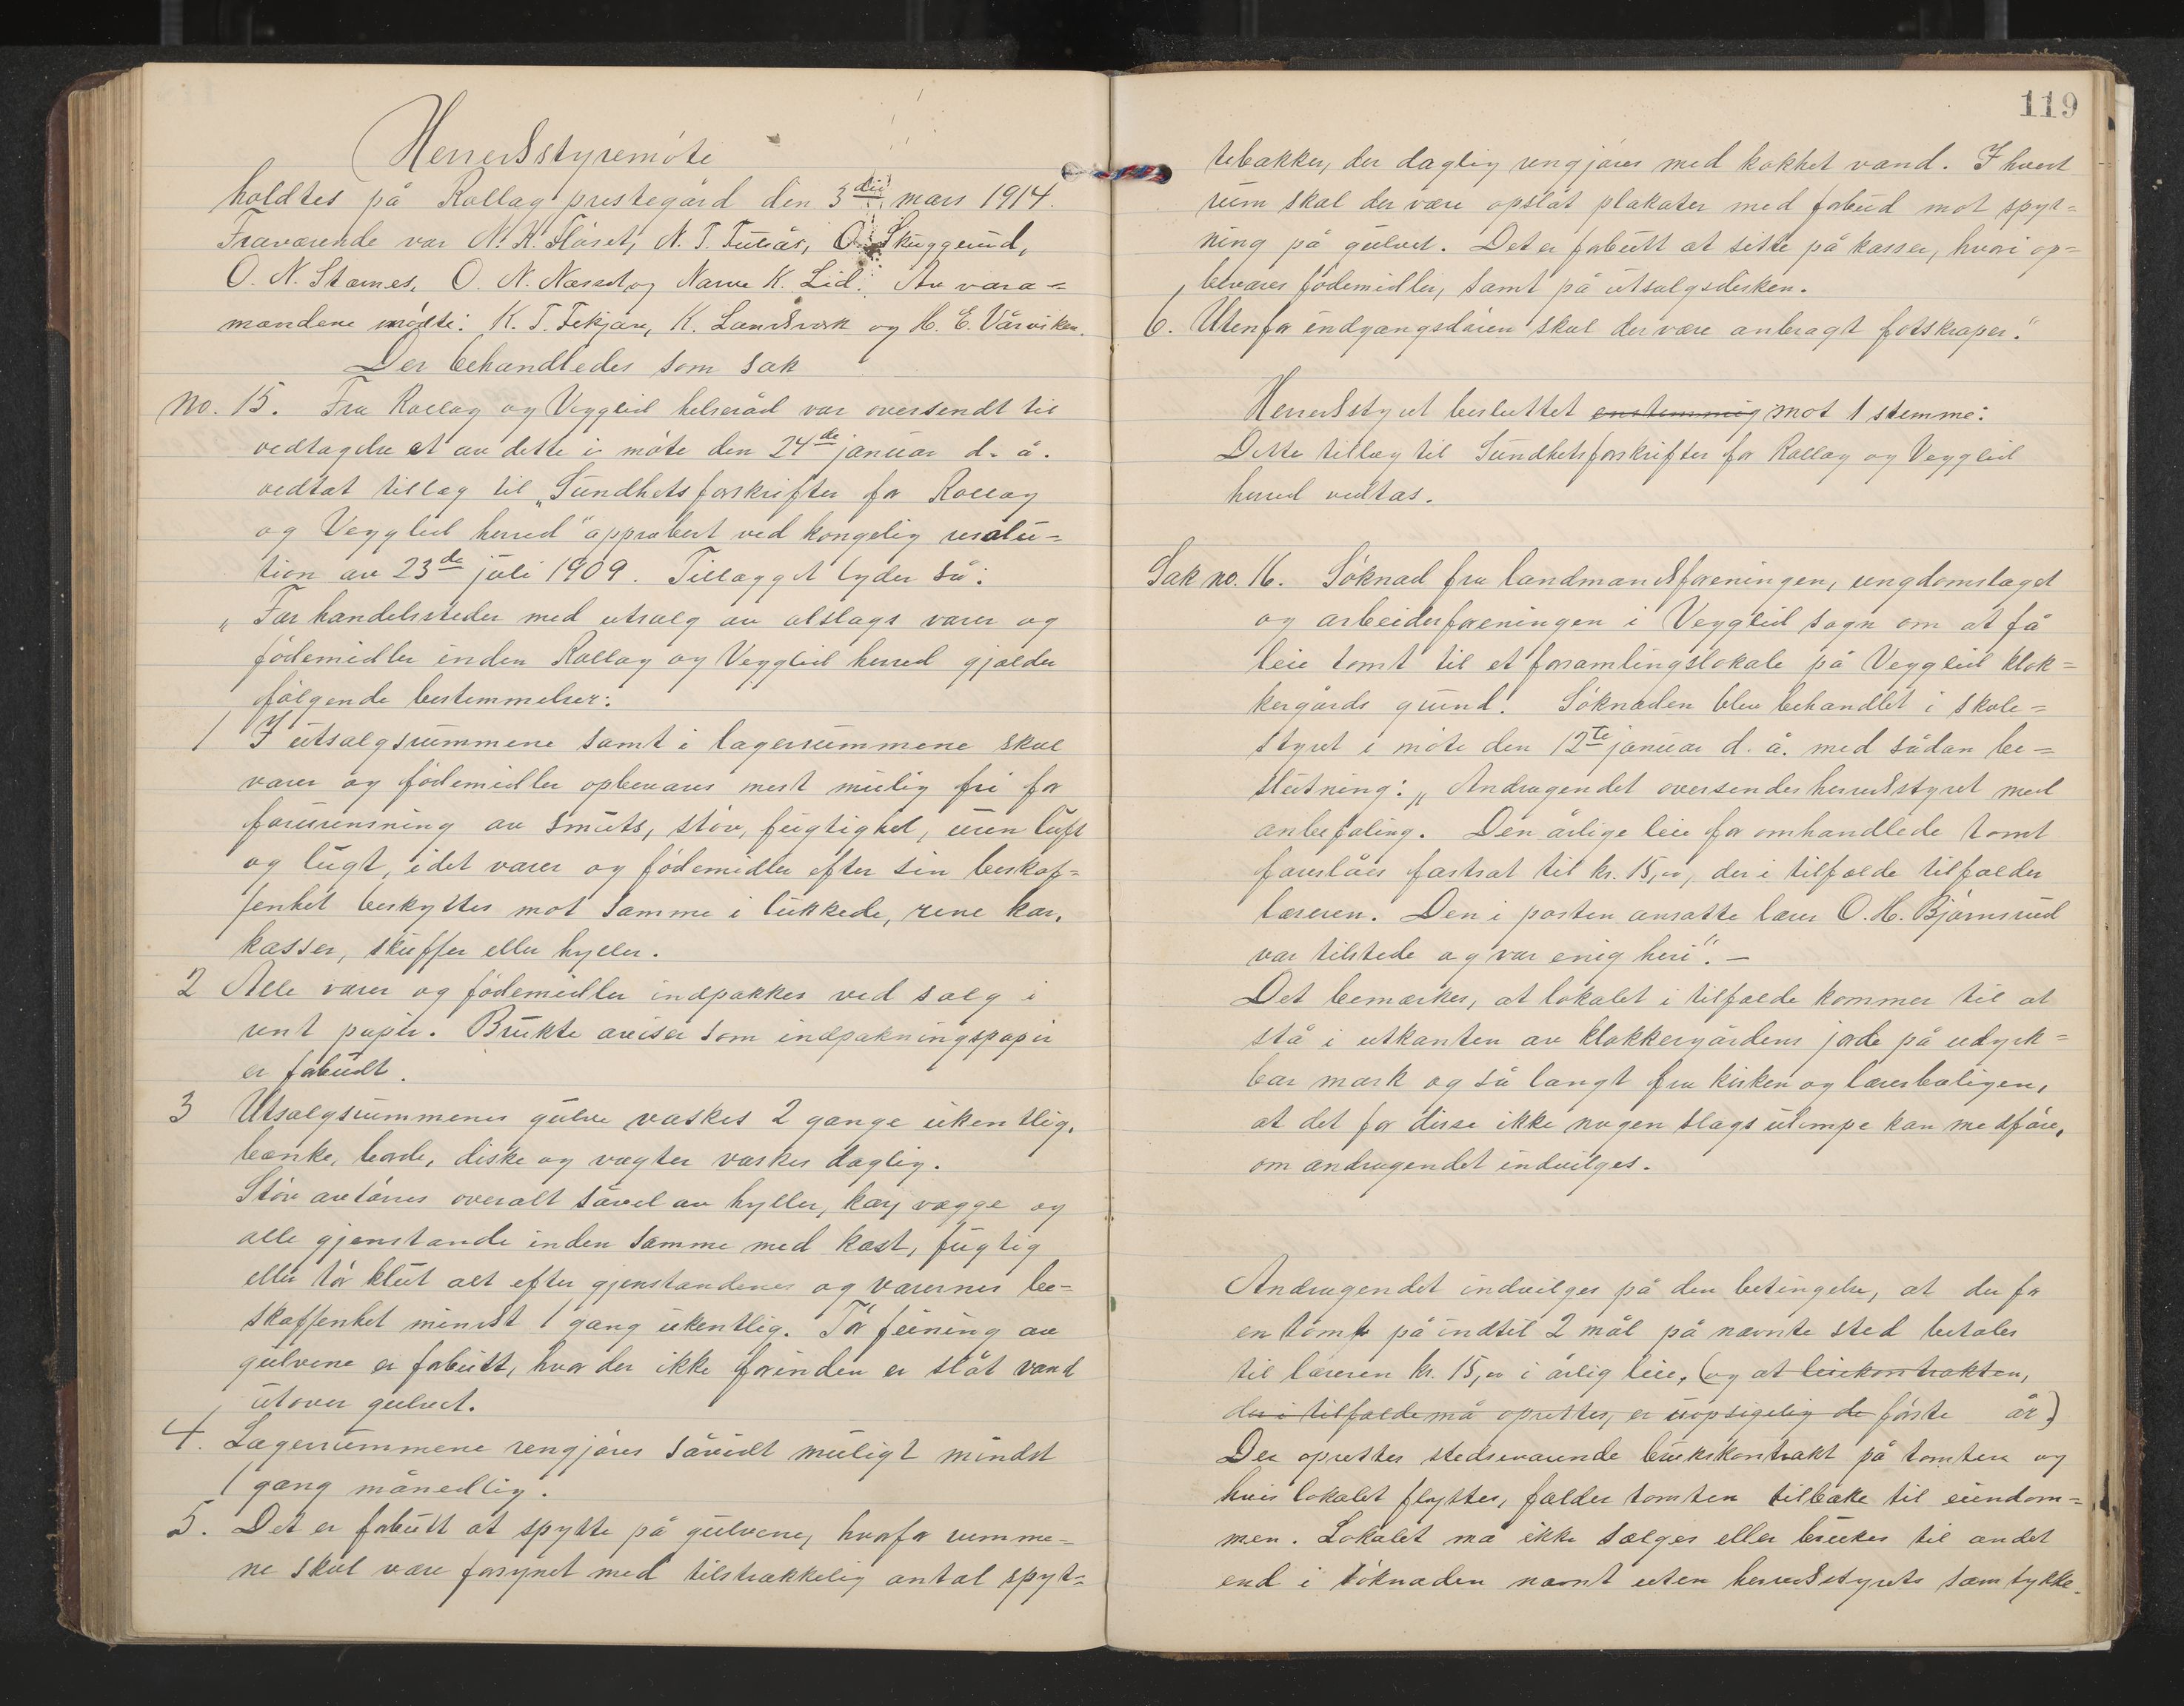 Herredsstyremöte
holdtes på Rollag prestegård den 3die mars 1914.
Fraværende var N. K. Flåset, N. T. Fulsås, O. Skuggerud,
O. N. Stærnes, O. N. Næsset og Narve K. Lid. Av vara=
mændene mödte: K. T. Fekjær, K. Landsverk og H. E. Vårviken.
Der behandledes som sak
no. 15. Fra Rollag og Vegglid helseråd var oversendt til
vedtagelse et av dette i möte den 24de januar d. å.
vedtat tillæg til „Sundhetsforskrifter for Rollag
og Vegglid herred" approbert ved kongelig resolu=
tion av 23de juli 1909. Tillægget lyder så:
„For handelssteder med utsalg av alslags varer og
födemidler inden Rollag og Vegglid herred gjælder
fölgende bestemmelser:
1 I utsalgsrummene samt i lagerrummene skal
varer og födemidler opbevares mest mulig fri for
forurensning av smuts, stöv, fugtighet, uren luft
og lugt, idet varer og födemidler efter sin beskaf=
fenhet beskyttes mot samme i lukkede, rene kar,
kasser, skuffer eller hyller.
2 Alle varer og födemidler indpakkes ved salg i
rent papir. Brukte aviser som indpakningspapir
er forbudt.
3 Utsalgsrummenes gulve vaskes 2 gange ukentlig,
bænke, borde, diske og vægter vaskes daglig.
Stöv avtörres overalt såvel av hyller, kar, vægge og
alle gjenstande inden samme med kost, fugtig
eller tör klut alt efter gjenstandenes og varernes be=
skaffenhet mindst 1 gang ukentlig. Tör feining av
gulvene er forbutt, hvor der ikke forinden er slåt vand
utover gulvet.
4. Lagerrummene rengjöres såvidt muligt mindst
1 gang månedlig.
5. Det er forbutt at spytte på gulvene, hvorfor rumme=
ne skal være forsynet med tilstrækkelig antal spyt=
119
tebakker, der daglig rengjöres med kokhet vand. I hvert
rum skal der være opslåt plakater med forbud mot spyt=
ning på gulvet. Det er forbutt at sitte på kasser, hvori op=
bevares födemidler, samt på utsalgsdisken.
6. Utenfor indgangsdören skal der være anbragt fotskraper."
Herredsstyret besluttet enstemmig mot 1 stemme:
Dette tillæg til Sundhetsforskrifter for Rollag og Vegglid
herred vedtas.
Sak no. 16. Söknad fra landmandsforeningen, ungdomslaget
og arbeiderforeningen i Vegglid sogn om at få
leie tomt til et forsamlingslokale på Vegglid klok=
kergårds grund. Söknaden blev behandlet i skole=
styret i möte den 12te januar d. å. med sådan be=
slutning: „Andragendet oversendes herredsstyret med
anbefaling. Den årlige leie for omhandlede tomt
foreslåes fastsat til kr. 15,00, der i tilfælde tilfalder
læreren. Den i posten ansatte lærer O. H. Björnsrud
var tilstede og var enig heri". —
Det bemærkes, at lokalet i tilfælde kommer til at
stå i utkanten av klokkergårdens jorde på udyrk=
bar mark og så langt fra kirken og lærerboligen,
at det for disse ikke nogen slags ulempe kan medföre,
om andragendet indvilges.
Andragendet indvilges på den betingelse, at der for
en tomt på indtil 2 mål på nævnte sted betales
til læreren kr. 15,00 i årlig leie, (og at leiekontrakten,
der i tilfælde må oprettes, er uopsigelig de förste år)
Der oprettes stedsevarende brukskontrakt på tomten og
hvis lokalet flyttes, falder tomten tilbake til eiendom=
men. Lokalet må ikke sælges eller brukes til andet
end i söknaden nævnt uten herredsstyrets samtykke.